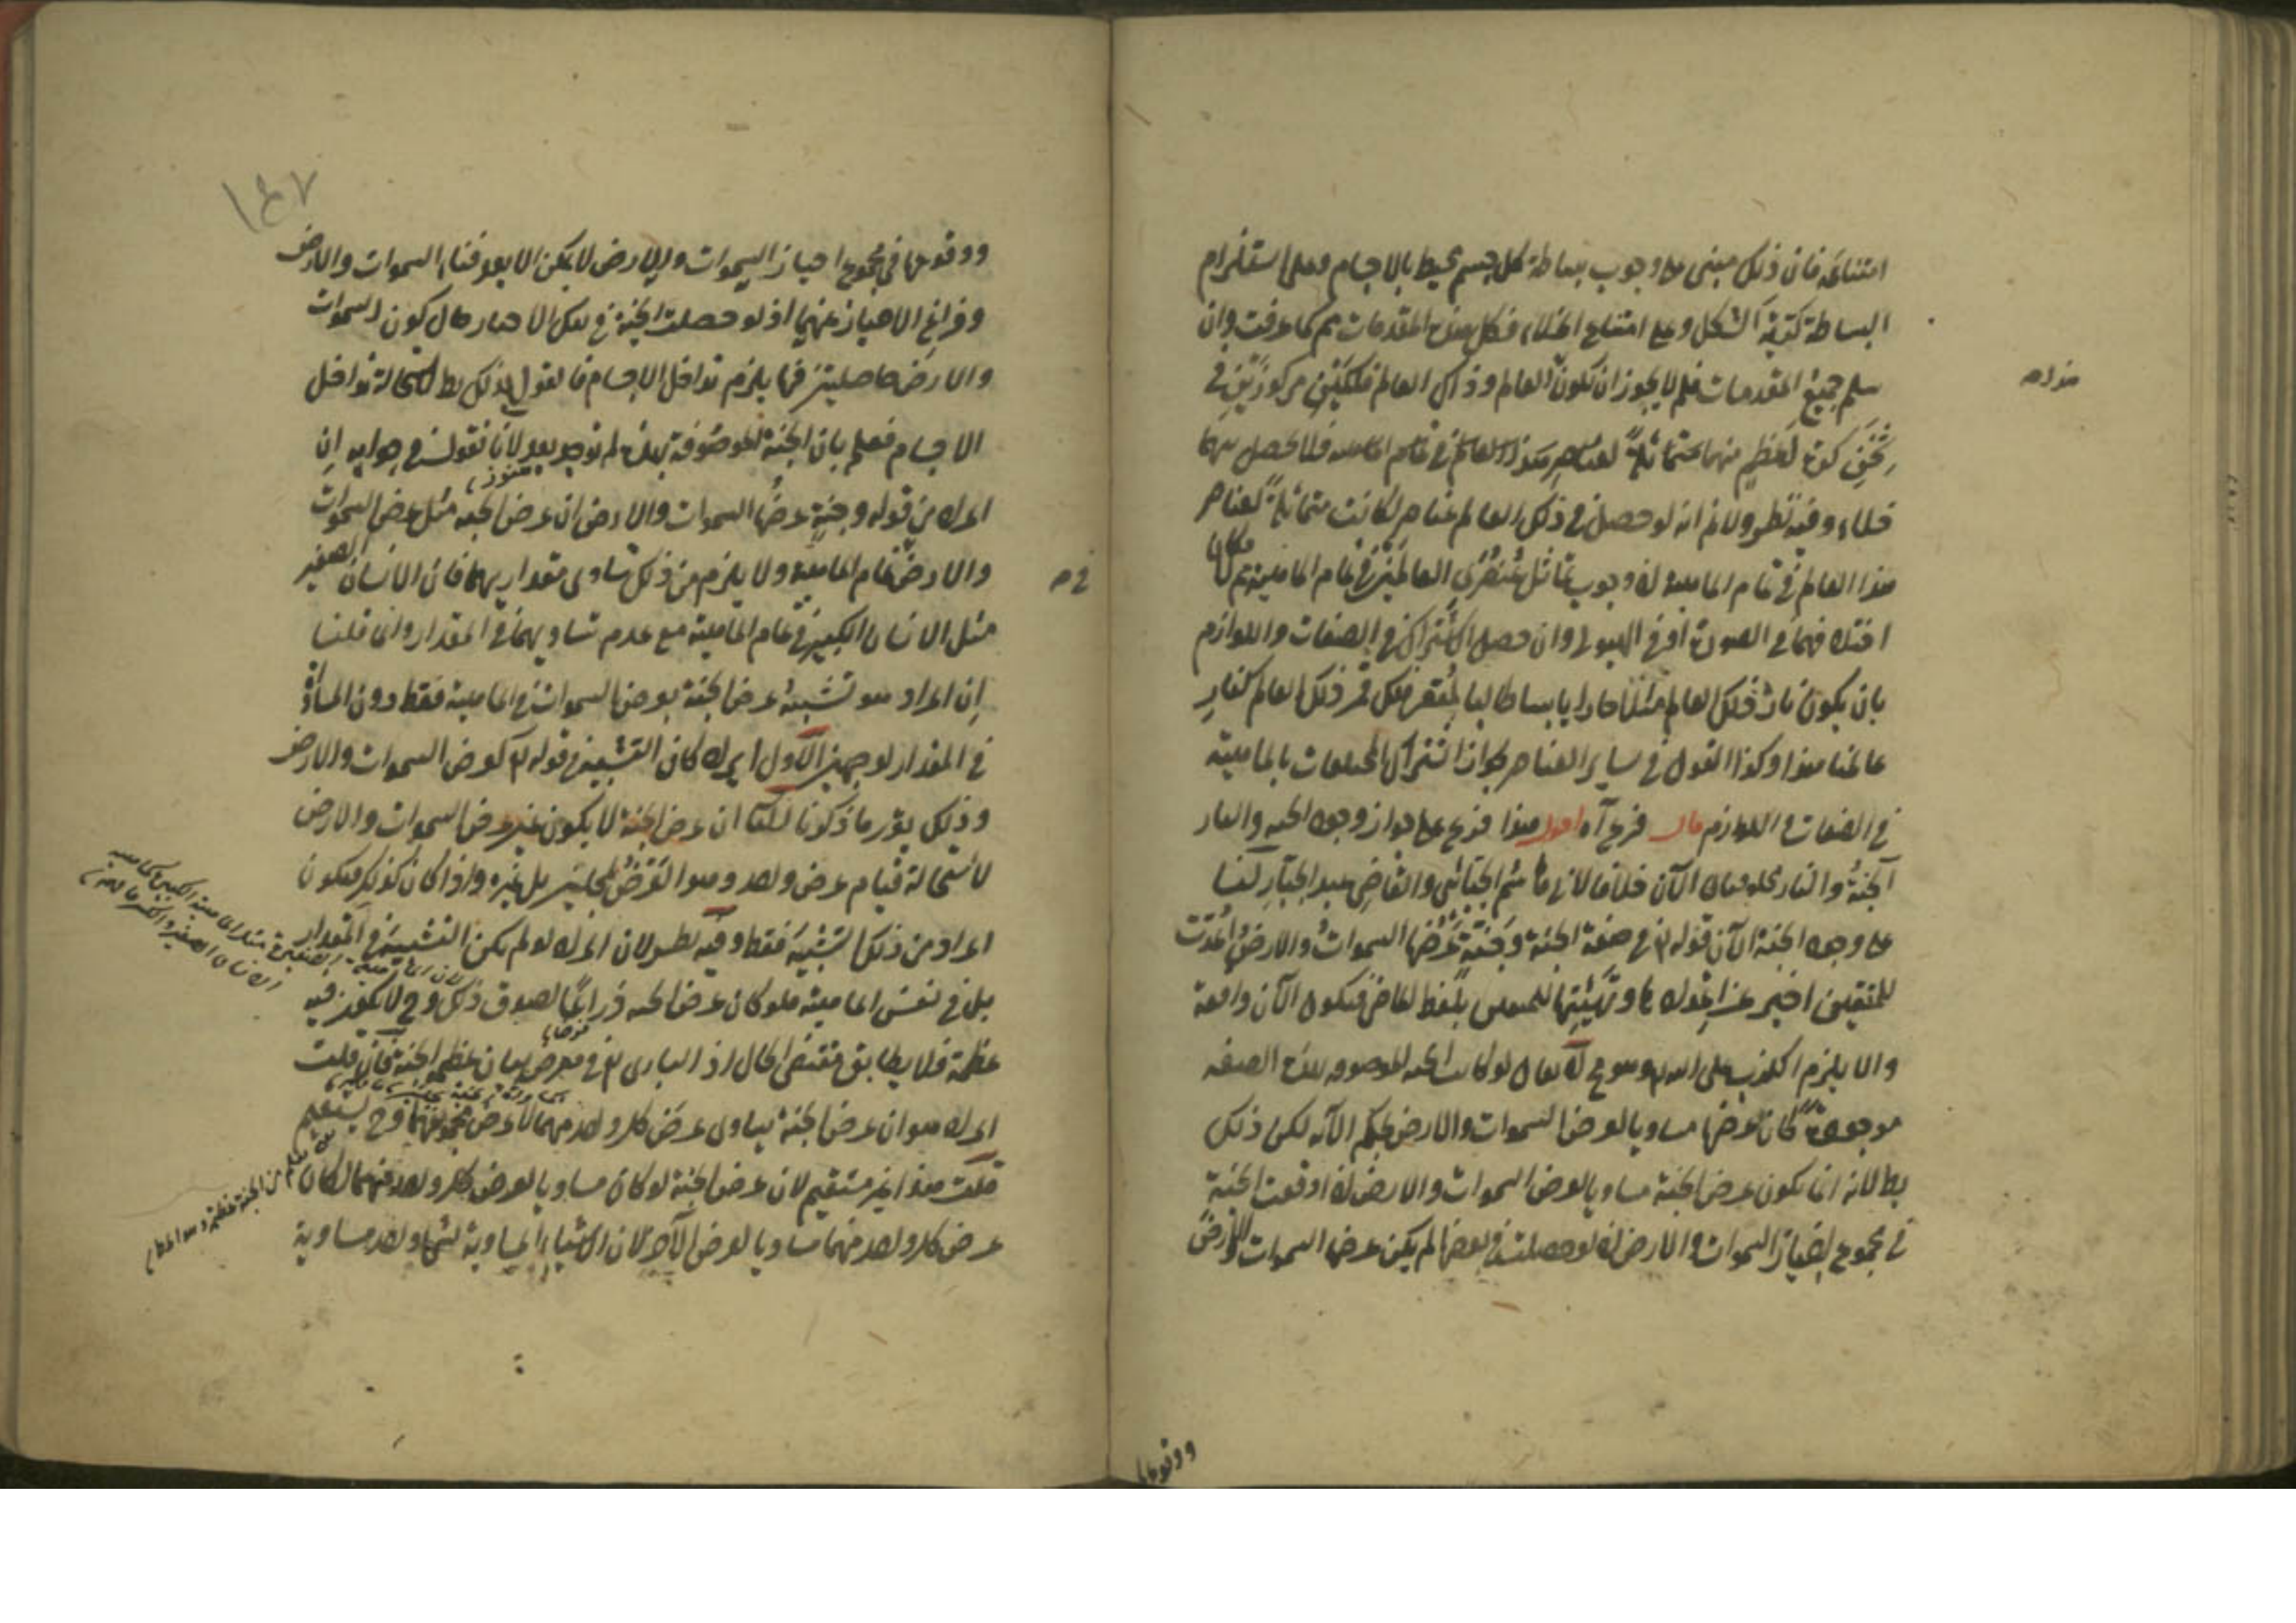 امتناعه فان ذلك مبنى على وجوب بساطة كل جسم محيط بالاجسام وعلى استلزام
البساطة كرية الشكل وعلى امتناع الخلاء فكل هذه المقدمات مم كما عرفت وان
سلم جميع المقدمات فلم لا يجوز ان يكون العالم وذاك العالم فلكين مركوزين في
ثخن كرة اعظم منهما متماثلة لعناصر هذا العالم في تمام الماهية فلا يحصل بينهما
خلاء وفيه نظر ولانم انه لو حصل في ذلك العالم عناصر لكانت متماثلة لعناصر
هذا العالم في تمام الماهية اذ وجوب تماثل عنصرى العالمين في تمام الماهية مم
اختلافهما في الصورة او في الهيولى وان حصل الاشتراك في الصفات واللوازم
بان يكون نار ذلك العالم مثلا حارا يابسا طالبا لمقعر فلك قمر ذلك العالم كنار
عالمنا هذا وكذا القول في ساير العناصر لجواز اشتراك المختلفات بالماهية
في الصفات واللوازم قال فرع آه اقول هذا فرع على جواز وجود الجنة والنار
الجنة والنار مخلوقتان الآن خلافا لابى هاشم الجبائى والقاضى عبد الجبار لنا
على وجود الجنة الآن قوله تع في صفة الجنة وجنة عرضها السموات والارض اعدت
للمتقين اخبر عن اعدادها وتهيئتها للمتقين بلفظ الماضى فيكون الآن واقعة
والا يلزم الكذب على الله تع وهو مح لا يقال لو كانت الجنة الموصوفة بهذه الصفة
موجودة كان عرضها مساويا لعرض السموات والارض بحكم الآية لكن ذلك
بط لانه انما يكون عرض الجنة مساويا لعرض السموات والارض اذا وقعت الجنة
في مجموع احياز السموات والارض اذ لو حصلت في بعضها لم يكن عرضها السموات والارض
ووقوعها
ووقوعها في مجموع احياز السموات والارض لا يمكن الا بعد فناء السموات والارض
وفراغ الاحياز عنهما اذ لو حصلت الجنة في تلك الاحياز حال كون السموات
والارض حاصلتين فيها يلزم تداخل الاجسام فالقول بذلك بط لاستحالة تداخل
الاجسام فعلم بان الجنة الموصوفة بهذه لم توجد بعد لانا نقول في جوابه ان
المراد من قوله وجنة عرضها السموات والارض ان عرض الجنة مثل عرض السموات
والارض في تمام الماهية ولا يلزم من ذلك تساوى مقداريهما فان الانسان الصغير
مثل الانسان الكبير في تمام الماهية مع عدم تساويهما في المقدار وانما قلنا
ان المراد هو تشبيه عرض الجنة بعرض السموات في الماهية فقط دون المساواة
في المقدار لوجهين الاول ايراد كان التشبيه في قوله تع كعرض السموات والارض
وذلك يقرر ما ذكرنا الثانى ان عرض الجنة لا يكون عين عرض السموات والارض
لاستحالة قيام عرض واحد وهو العرض بمحلين بل غيره واذا كان كذلك فيكون
المراد من ذلك التشبيه فقط وفيه نظر لان المراد لو لم يكن التشبيه في المقدار
بل في نفس الماهية فلو كان عرض الجنة ذراعا لصدق ذلك وح لا يكون فيه
عظمة فلا يطابق مقتضى الحال اذ البارى تع في معرض بيان عظم الجنة فان قلت
المراد هو ان عرض الجنة يساوى عرض كل واحد منهما لا عرض مجموعهما وح يستقيم
قلت هذا غير مستقيم لان عرض الجنة لو كان مساويا لعرض كل واحد منهما لكان
عرض كل واحد منهما مساويا لعرض الآخر لان الاشياء المساوية لشئ واحد مساوية
١٤٧